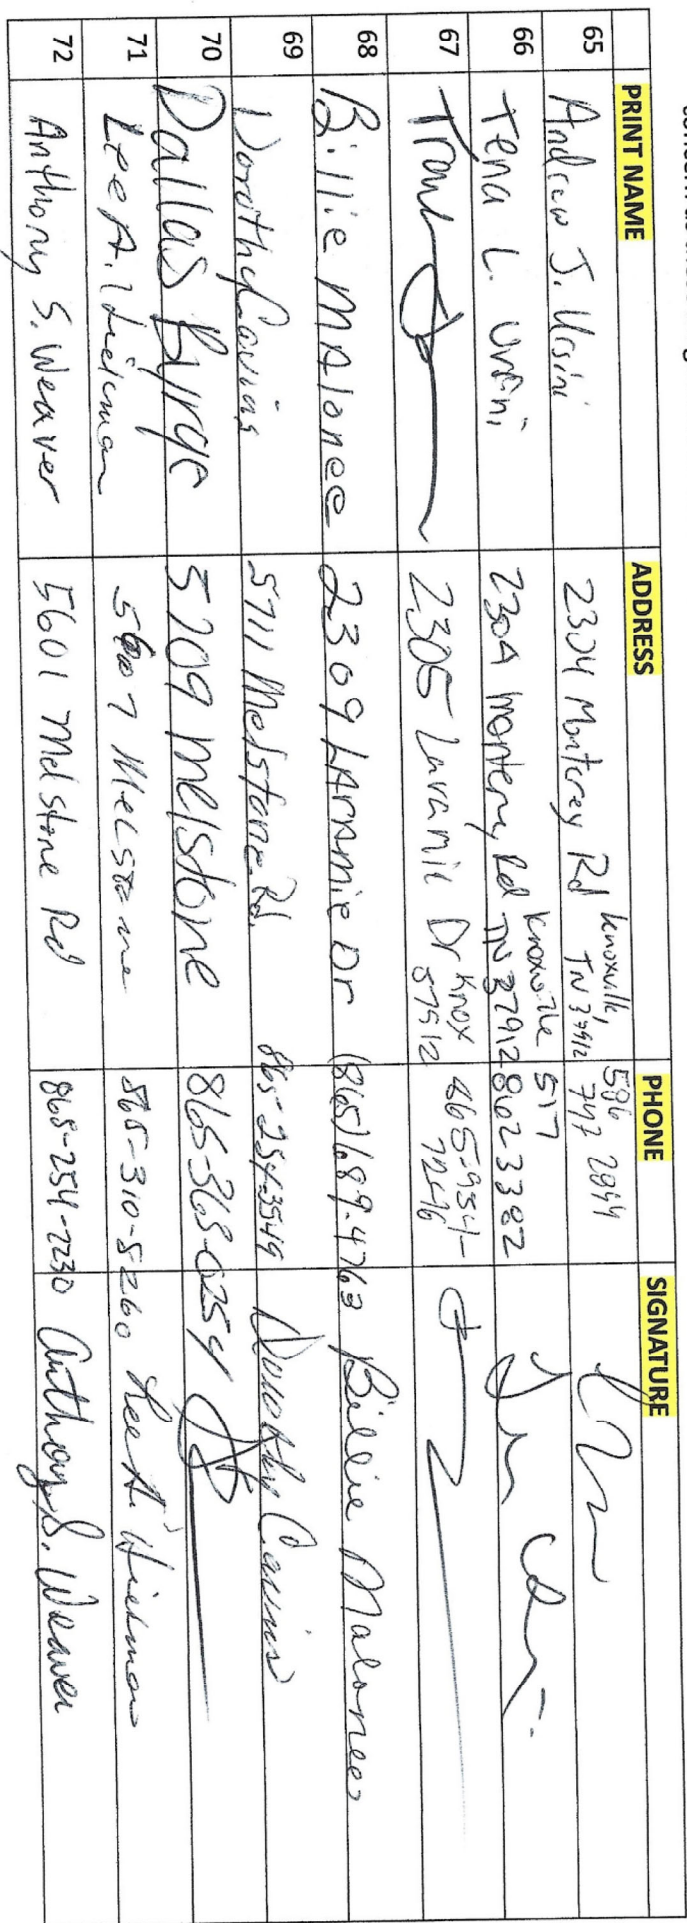 PRINT NAME ADDRESS PHONE SIGNATURE
65 Andrew J. Ursini 2304 Monterey Rd Knoxville, TN 37912 586 747 2844
66 Tena L. Ursini 2304 Monterey Rd Knoxville TN 37912 517 8623382
67 2305 Laramie Dr Knox 37912 865-951-7246
68 Billie MAlonee 2309 LArAmie Dr (865)689-4763 Billie Malonee
69 Dorothy Cavins 5711 Melstone Rd. 865-254-3549 Dorothy Cavins
70 Dallas Byrge 5709 Melstone 865-363-0254
71 Lee A. 5607 Melstone 865-310-5260 Lee A.
72 Anthony S. Weaver 5601 Melstone Rd 865-254-7230 Anthony S. Weaver